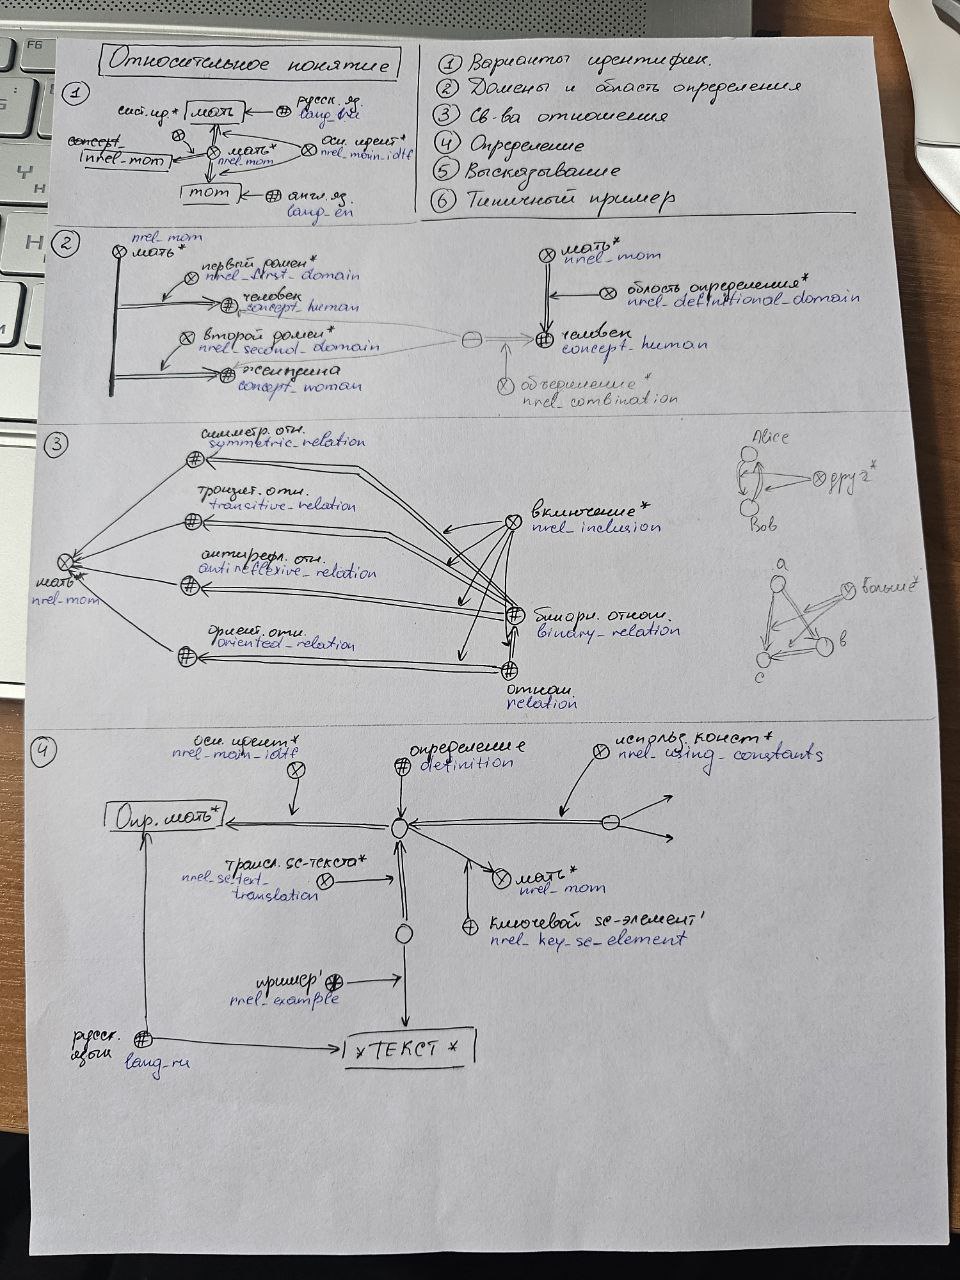 Относительное понятие
① Варианты идентифик.
② Домены и область определения
③ Св-ва отношения
④ Определение
⑤ Высказывание
⑥ Типичный пример
①
сист. ид*
мать
русск. яз.
concept_
lnrel-mom
мать*
nrel_mom
осн. идент*
nrel_main_idtf
mom
англ. яз.
lang_en
②
nrel_mom
мать*
первый домен*
nrel_first_domain
человек
concept_human
второй домен*
nrel_second_domain
женщина
concept_woman
мать*
nrel_mom
область определения*
nrel_definitional_domain
человек
concept_human
объединение*
nrel_combination
③
симметр. отн.
symmetric_relation
транзит. отн.
transitive_relation
антирефл. отн.
antireflexive_relation
ориент. отн.
oriented_relation
мать*
nrel_mom
включение*
nrel_inclusion
бинарн. отнош.
binary_relation
отнош.
relation
Alice
друг*
Bob
a
больше*
b
c
④
осн. идент*
nrel_main_idtf
определение
definition
использ. конст*
nrel_using_constants
Опр. мать*
трансл. sc-текста*
nrel_sc_text_
translation
мать*
nrel_mom
ключевой sc-элемент'
nrel_key_sc_element
пример'
rrel_example
русск.
язык
lang_ru
* ТЕКСТ *
F6